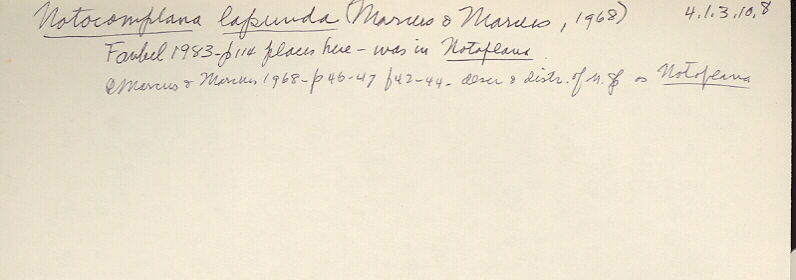 Notocomplana lapunda (Marcus & Marcus, 1968) 4.1.3.10.8
Faubel 1983-p114 places here - was in Notoplana
Marcus & Marcus 1968-p46-47 f42-44- descr & distr. of n. sp as Notoplana